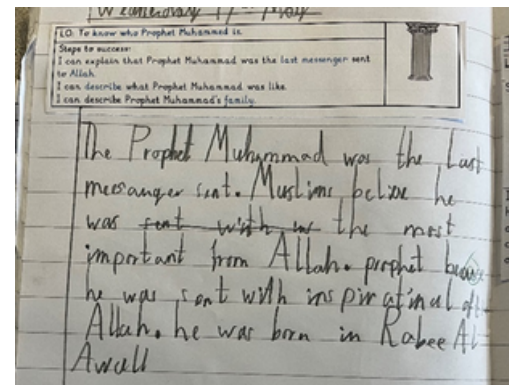 Wednesday 17th May
L.O: To know who Prophet Muhammed is.
Steps to success:
I can explain that Prophet Muhammad was the last messenger sent
to Allah.
I can describe what Prophet Muhammad was like.
I can describe Prophet Muhammad's family.
The Prophet Muhammad was the last
messanger sent. Muslims belive he
was sent with the most
important from Allah. prophet
he was sent with inspiratinal
Allah. he was born in Rabee Al
Awall